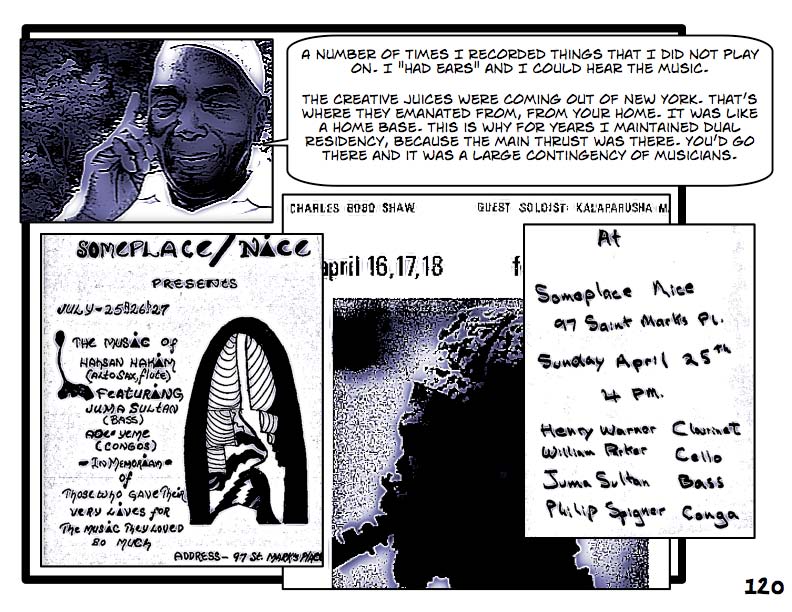 A NUMBER OF TIMES I RECORDED THINGS THAT I DID NOT PLAY
ON. I "HAD EARS" AND I COULD HEAR THE MUSIC.
THE CREATIVE JUICES WERE COMING OUT OF NEW YORK. THAT'S
WHERE THEY EMANATED FROM, FROM YOUR HOME. IT WAS LIKE
A HOME BASE. THIS IS WHY FOR YEARS I MAINTAINED DUAL
RESIDENCY, BECAUSE THE MAIN THRUST WAS THERE. YOU'D GO
THERE AND IT WAS A LARGE CONTINGENCY OF MUSICIANS.
CHARLES BOBO SHAW GUEST SOLOIST: KALAPARUSHA M
april 16,17,18 f
SOMEPLACE/NICE
PRESENTS
JULY-25&26&27
THE MUSIC OF
HASSAN HAKIM
(ALTO SAX, flute)
FEATURING
JUMA SULTAN
(BASS)
YEME
(CONGOS)
-IN MEMORIAM-
of
Those who GAVE Their
VERY LIVES FOR
The MUSIC They LOVED
SO MUCH
ADDRESS- 97 St. MARK'S PLACE
At
Someplace Nice
97 Saint Mark's Pl.
Sunday April 25th
4 PM.
Henry Warner Clarinet
William Parker Cello
Juma Sultan Bass
Philip Spigner Conga
120